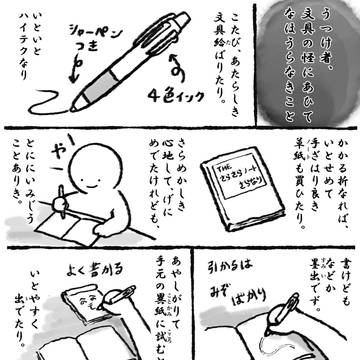 うつけ者、
文具の怪にあひて
なほうらなきこと
こたび、あたらしき
文具給ばりたり。
シャーペン
つき
4色インク
いといと
ハイテクなり
かかる折なれば、
いとせめて
手ざはり良き
草紙も買ひたり。
THE
さらさらノート
さらなり
さらめかしき
心地して、げに
めでたけれども、
や!
とににいみじう
ことありき。
書けども
などか
墨出でず。
引からは
みぞ
ばかり
あやしがりて
手元の異紙に試むに
よく書かる
いとやすく
出でたり。